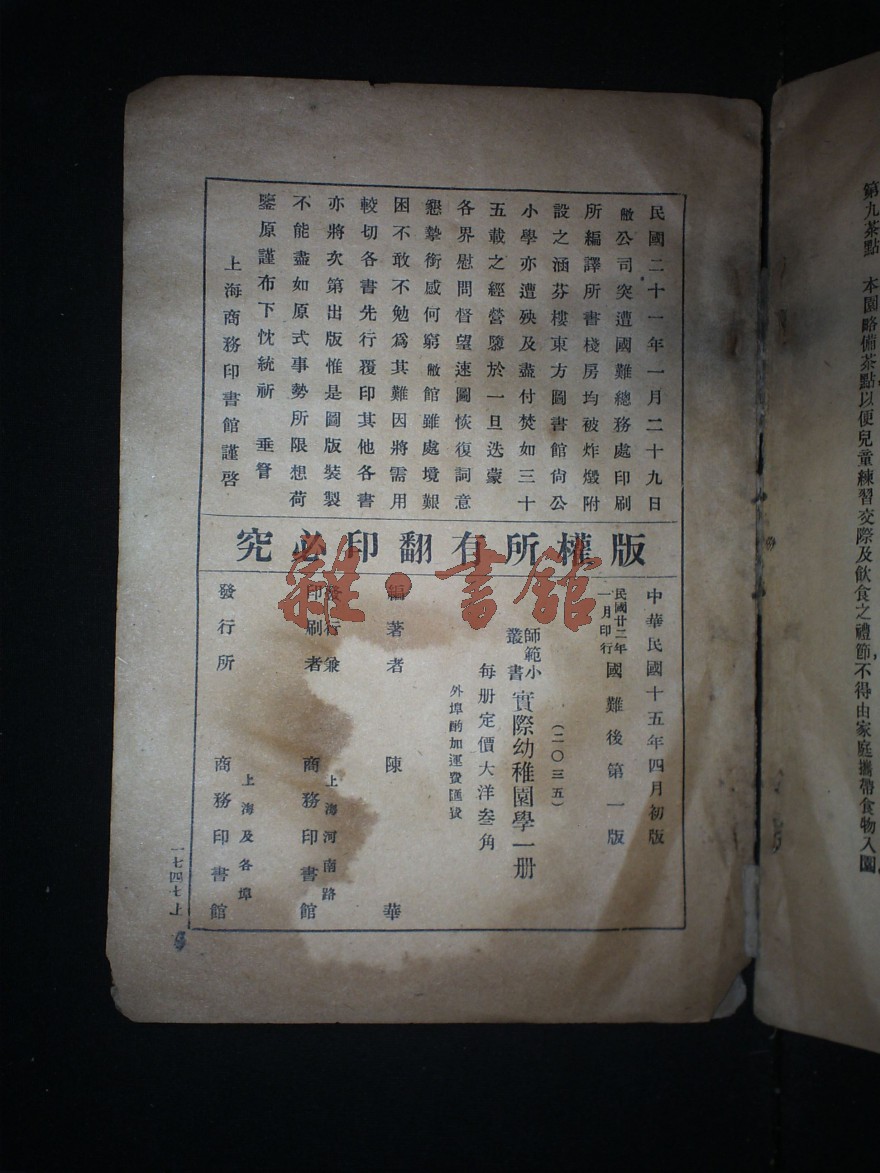 第九茶點　本園略備茶點以便兒童練習交際及飲食之禮節,不得由家庭攜帶食物入園,
民國二十一年一月二十九日
敝公司突遭國難總務處印刷
所編譯所書棧房均被炸燬附
設之涵芬樓東方圖書館尙公
小學亦遭殃及盡付焚如三十
五載之經營隳於一旦迭蒙
各界慰問督望速圖恢復詞意
懇摯銜感何窮敝館雖處境艱
困不敢不勉爲其難因將需用
較切各書先行覆印其他各書
亦將次第出版惟是圖版裝製
不能盡如原式事勢所限想荷
鑒原謹布下忱統祈　垂詧
上海商務印書館謹啓
版權所有翻印必究
中華民國十五年四月初版
民國廿二年一月印行 國難後第一版
(二〇三五)
師範小叢書 實際幼稚園學一册
每册定價大洋叁角
外埠酌加運費匯費
編著者 陳華
發行兼印刷者 上海河南路 商務印書館
發行所 上海及各埠 商務印書館
一七四七上
雜·書館